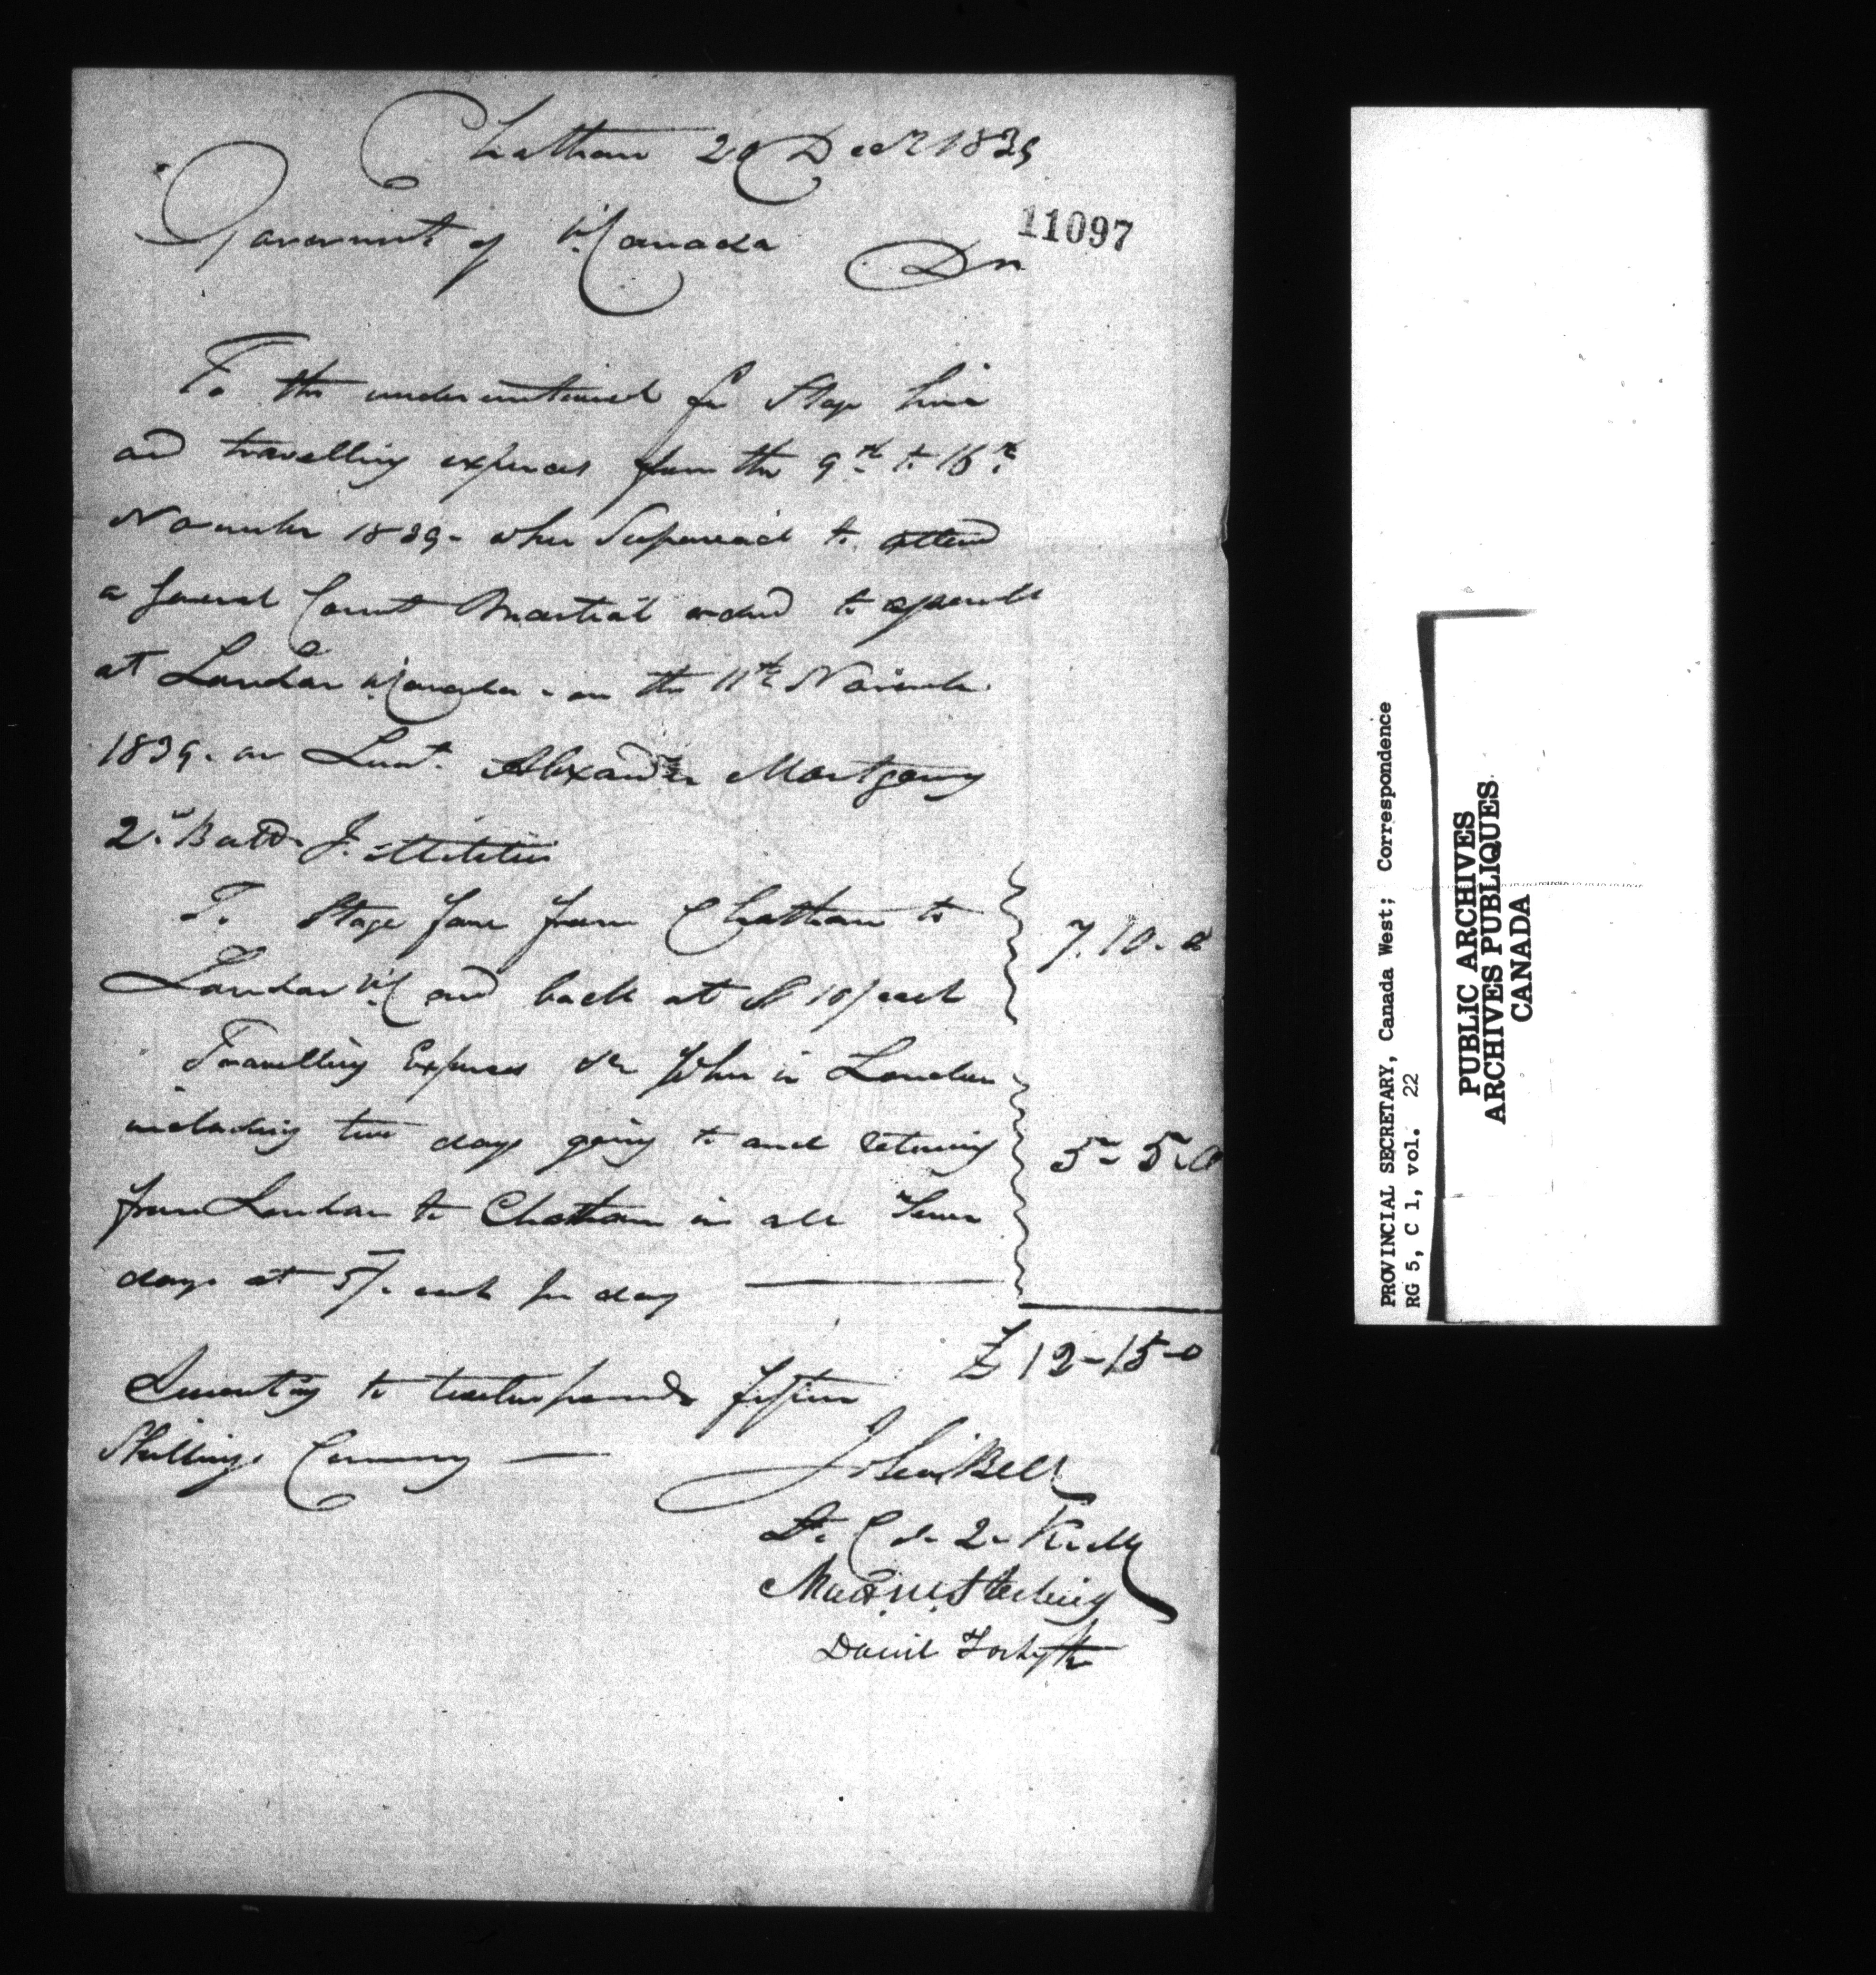 Chatham 20 Decr 1839
11097
Goverment of U. Canada Dr
To the undermentioned for Stage hire
and travelling expences from the 9th to 16th
November 1839 - when Supœnaed to attend
a General Court Martial orderd to assemble
at London U. Canada - on the 11th November
1839. on Lieut. Alexander Montgomery
2d Battn I. Militia
To Stage fare from Chatham to
London U.C and back at 10/ each
7. 10. 0
Travelling Expences when in London
including two days going to and returning
from London to Chatham in all Seven
days at 5/. each per day
5 - 5 - 0
£ 12 - 15 - 0
Amounting to twelve pounds fifteen
Shillings Currency
John Bell
Lt. Col. 2d Kent
Sterling
David Forsyth
PROVINCIAL SECRETARY, Canada West; Correspondence
RG 5, C 1, vol. 22
PUBLIC ARCHIVES
ARCHIVES PUBLIQUES
CANADA